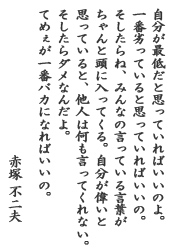 自分が最低だと思っていればいいのよ。
一番劣っていると思っていればいいの。
そしたらね、みんなの言っている言葉が
ちゃんと頭に入ってくる。自分が偉いと
思っていると、他人は何も言ってくれない。
そしたらダメなんだよ。
てめぇが一番バカになればいいの。
赤塚 不二夫